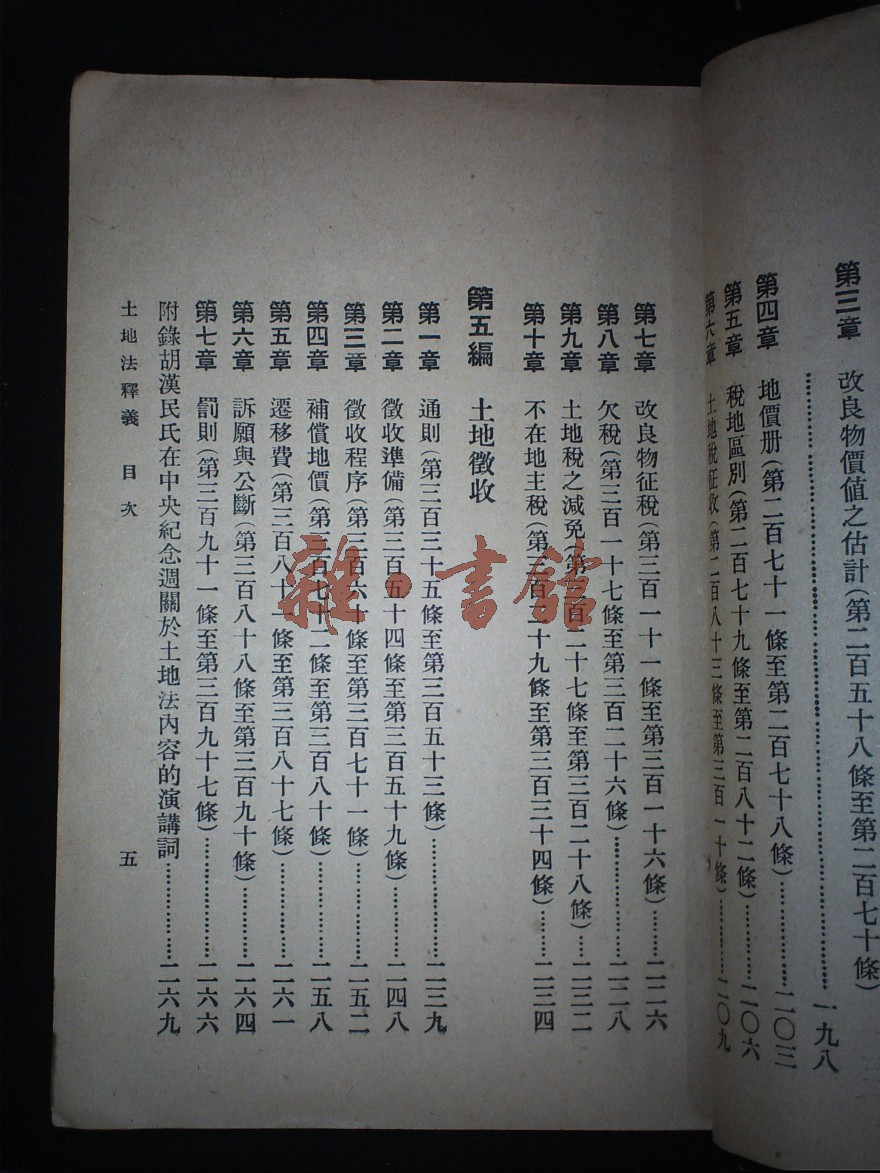 第三章　改良物價值之估計(第二百五十八條至第二百七十條)
……一九八
第四章　地價册(第二百七十一條至第二百七十八條)……二〇三
第五章　稅地區別(第二百七十九條至第二百八十二條)……二〇六
第六章　土地稅征收(第二百八十三條至第三百一十條)……二〇九
第七章　改良物征稅(第三百一十一條至第三百一十六條)……二二六
第八章　欠稅(第三百一十七條至第三百二十六條)……二二八
第九章　土地稅之減免(第三百二十七條至第三百二十八條)……二三二
第十章　不在地主稅(第三百二十九條至第三百三十四條)……二三四
第五編　土地徵收
第一章　通則(第三百三十五條至第三百五十三條)……二三九
第二章　徵收準備(第三百五十四條至第三百五十九條)……二四八
第三章　徵收程序(第三百六十條至第三百七十一條)……二五二
第四章　補償地價(第三百七十二條至第三百八十條)……二五八
第五章　遷移費(第三百八十一條至第三百八十七條)……二六一
第六章　訴願與公斷(第三百八十八條至第三百九十條)……二六四
第七章　罰則(第三百九十一條至第三百九十七條)……二六六
附錄胡漢民氏在中央紀念週關於土地法內容的演講詞……二六九
土地法釋義　目次　五
雜·書館